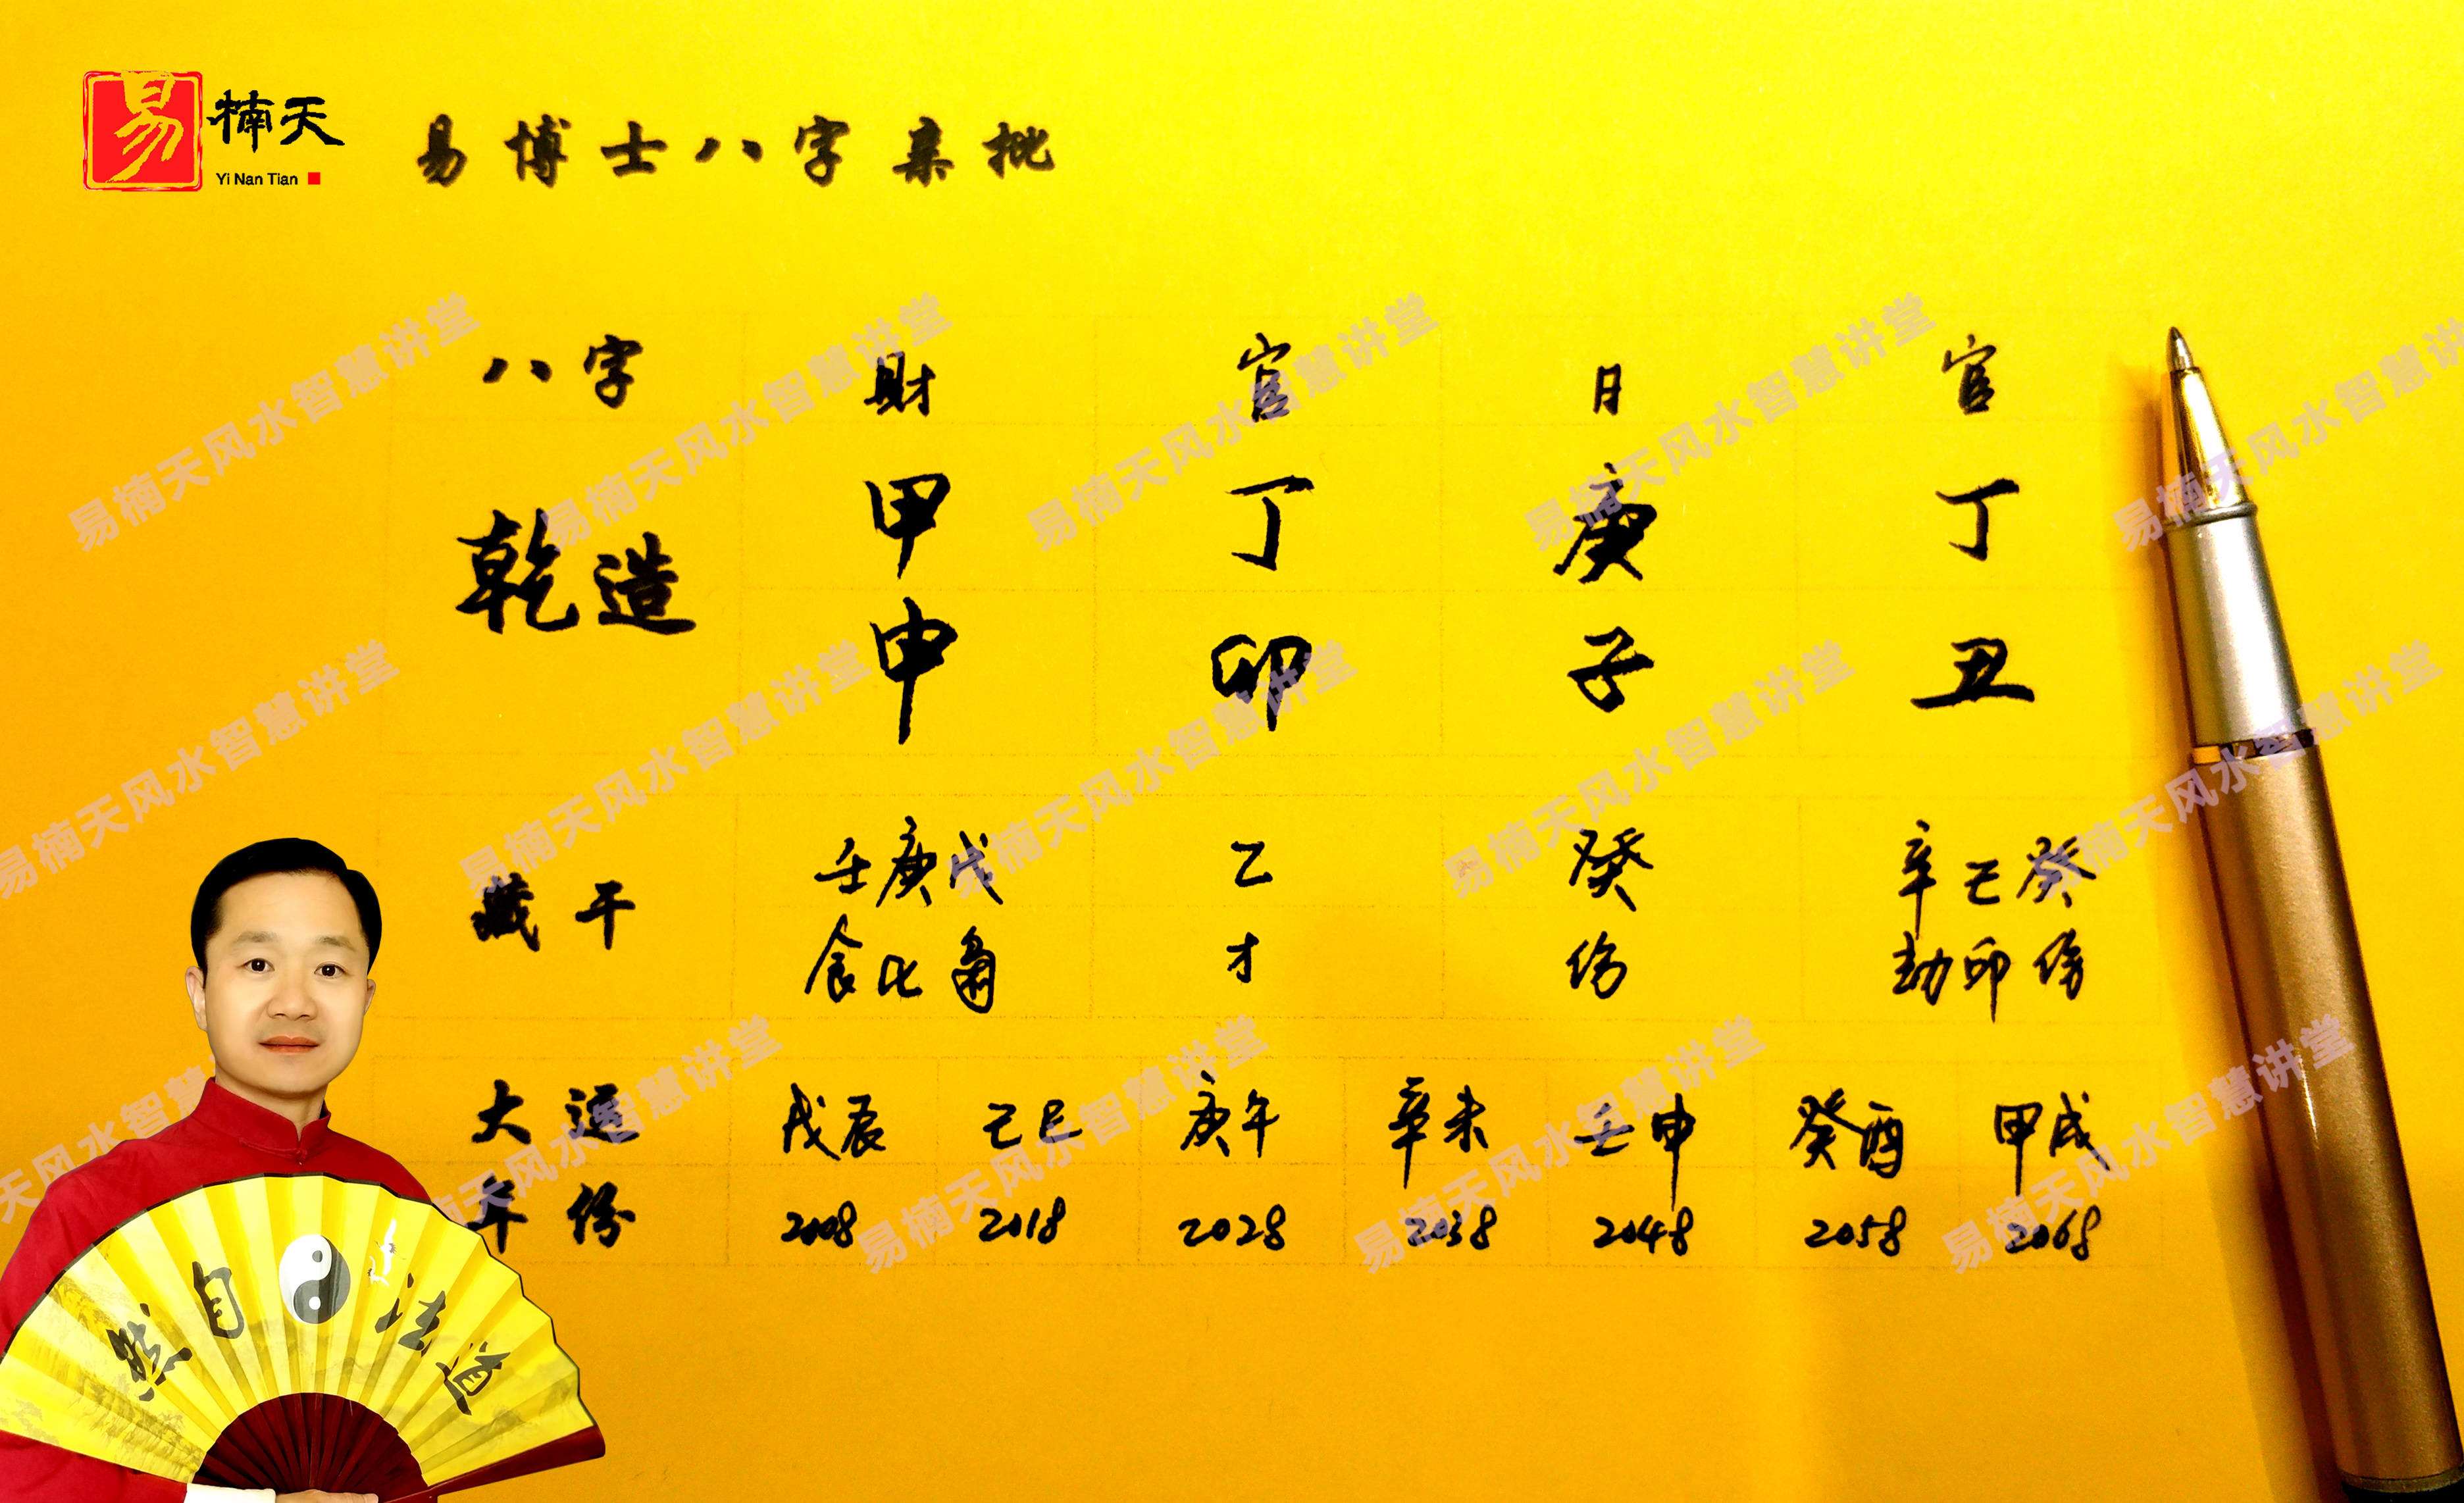 易 楠天
Yi Nan Tian
易博士八字亲批
八字 财 官 日 官
乾造 甲 丁 庚 丁
申 卯 子 丑
藏干 壬庚戊 乙 癸 辛己癸
食比枭 才 伤 劫印伤
大运 戊辰 己巳 庚午 辛未 壬申 癸酉 甲戌
年份 2008 2018 2028 2038 2048 2058 2068
道法自然
易楠天风水智慧讲堂